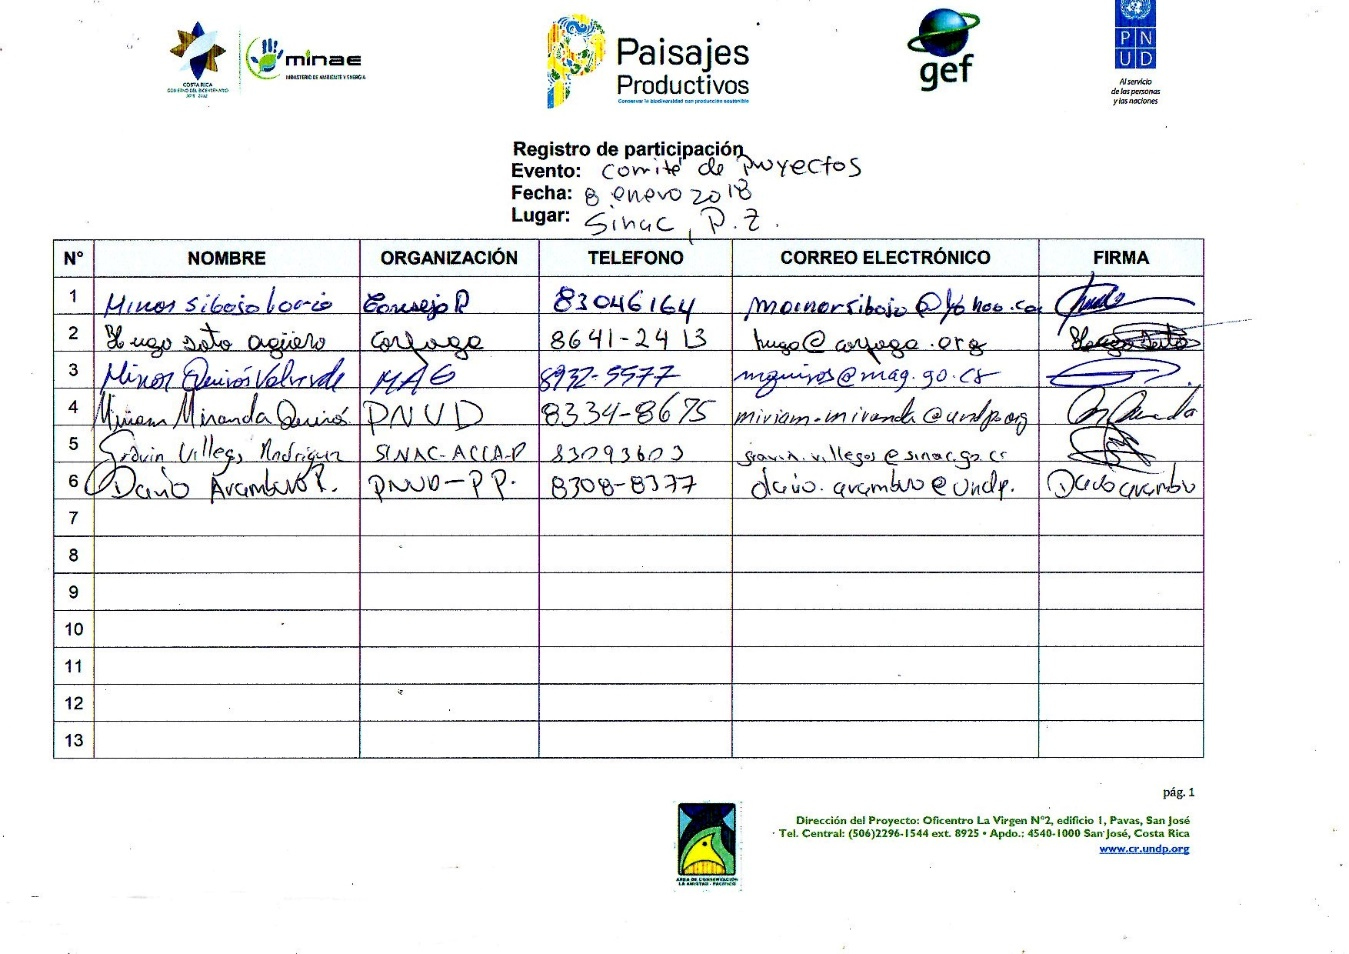 COSTA RICA
GOBIERNO DEL BICENTENARIO
minae
MINISTERIO DE AMBIENTE Y ENERGIA
Paisajes
Productivos
Conservar la biodiversidad con producción sostenible
gef
PN
UD
Al servicio
de las personas
y las naciones
Registro de participación
Evento: Comité de Proyectos
Fecha: 8 enero 2018
Lugar: Sinac, P.Z.
N° NOMBRE ORGANIZACIÓN TELEFONO CORREO ELECTRÓNICO FIRMA
1 Minor Sibaja Consejo R 83046164
2 Hugo Soto Agüero Corfoga 8641-2413 hugo@corfoga.org Hugo Soto
3 Minor Quirós Valverde MAG 8932-5577 mquiros@mag.go.cr
4 Miriam Miranda Quirós PNUD 8334-8675 miriam.miranda@undp.org
5 Villegas Rodriguez SINAC-ACLA-P 83093603
6 Darío Aramburo R. PNUD-PP. 8308-8377 dario.aramburo@undp.
7
8
9
10
11
12
13
pág. 1
Dirección del Proyecto: Oficentro La Virgen N°2, edificio 1, Pavas, San José
Tel. Central: (506)2296-1544 ext. 8925 • Apdo.: 4540-1000 San José, Costa Rica
www.cr.undp.org
AREA DE CONSERVACION
LA AMISTAD - PACIFICO